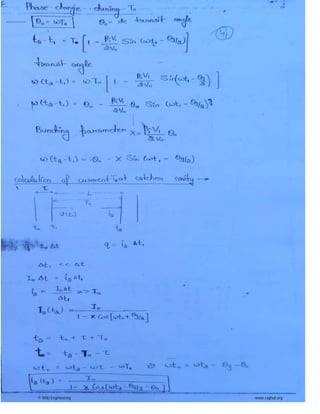 Phase change during T₀
θ₀ = ωT₀  θ₀ = dc transit angle
(4)
t₂ - t₁ = T₀ [ 1 - βᵢV₁/2V₀ Sin (ωt₁ - θg/2) ]
transit angle
ω(t₂ - t₁) = ωT₀ [ 1 - βᵢV₁/2V₀ Sin(ωt₁ - θg/2) ]
ω(t₂ - t₁) = θ₀ - βᵢV₁/2V₀ θ₀ Sin (ωt₁ - θg/2)
Bunching parameter X = βᵢV₁/2V₀ θ₀
ω(t₂ - t₁) = θ₀ - X Sin (ωt₁ - θg/2)
calculation of current i₂ at catcher cavity
τ L
T₀
t₀ t₁ t₂
I₀ Δt q = i₂ Δt₂
Δt₂ << Δt
I₀ Δt = i₂ Δt₂
i₂ = I₀Δt/Δt₂ >> I₀
i₂(t₂) = I₀ / 1 - X Cos[ωt₀ + θg/2]
t₂ = t₀ + τ + T₀
t₀ = t₂ - T₀ - τ
ωt₀ = ωt₂ - ωτ - ωT₀ ⇒ ωt₀ = ωt₂ - θg - θ₀
i₂(t₂) = I₀ / 1 - X Cos[ωt₂ - θg/2 - θ₀]
Engineering
www.raghul.org